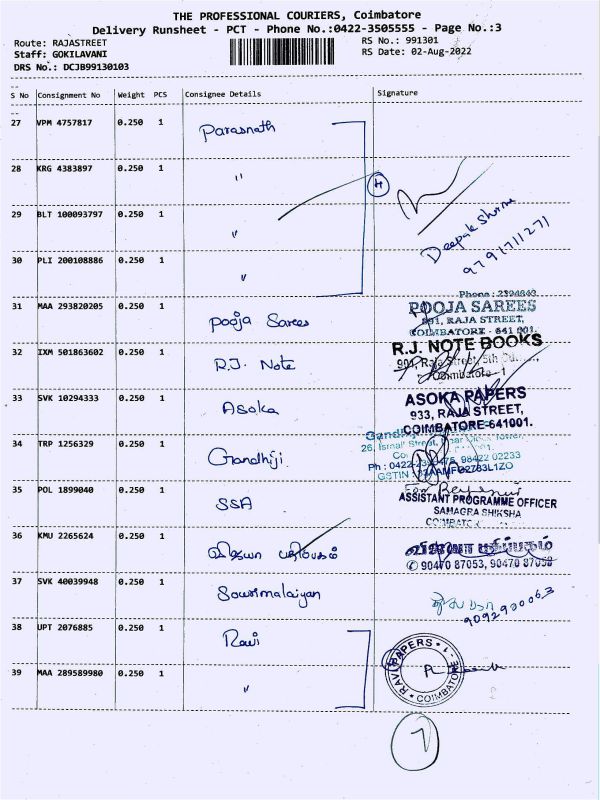 THE PROFESSIONAL COURIERS, Coimbatore
Delivery Runsheet - PCT - Phone No.:0422-3505555 - Page No.:3
Route: RAJASTREET
RS No.: 991301
Staff: GOKILAVANI
RS Date: 02-Aug-2022
DRS No.: DCJB99130103
S No Consignment No Weight PCS Consignee Details Signature
27 VPM 4757817 0.250 1 Parasnath
28 KRG 4383897 0.250 1 "
4
29 BLT 100093797 0.250 1 "
Deepak Sharma
9791711271
30 PLI 200108886 0.250 1 "
Phone: 2394643
31 MAA 293820205 0.250 1 Pooja Sarees
POOJA SAREES
891, RAJA STREET,
COIMBATORE - 641 001.
32 IXM 501863602 0.250 1 R.J. Note
R.J. NOTE BOOKS
901, Raja Street, 5th
Coimbatore - 1
33 SVK 10294333 0.250 1 Asoka
ASOKA PAPERS
933, RAJA STREET,
COIMBATORE-641001.
34 TRP 1256329 0.250 1 Gandhiji
26, Street,
98422 02233
35 POL 1899040 0.250 1 SSA
ASSISTANT PROGRAMME OFFICER
SAMAGRA SHIKSHA
36 KMU 2265624 0.250 1 விஜயா பதிப்பகம்
விஜயா பதிப்பகம்
90470 87053, 90470 87058
37 SVK 40039948 0.250 1 Sowrimalaiyan
9092900063
38 UPT 2076885 0.250 1 Ravi
RAVI PAPERS
COIMBATORE - 1
39 MAA 289589980 0.250 1 "
7